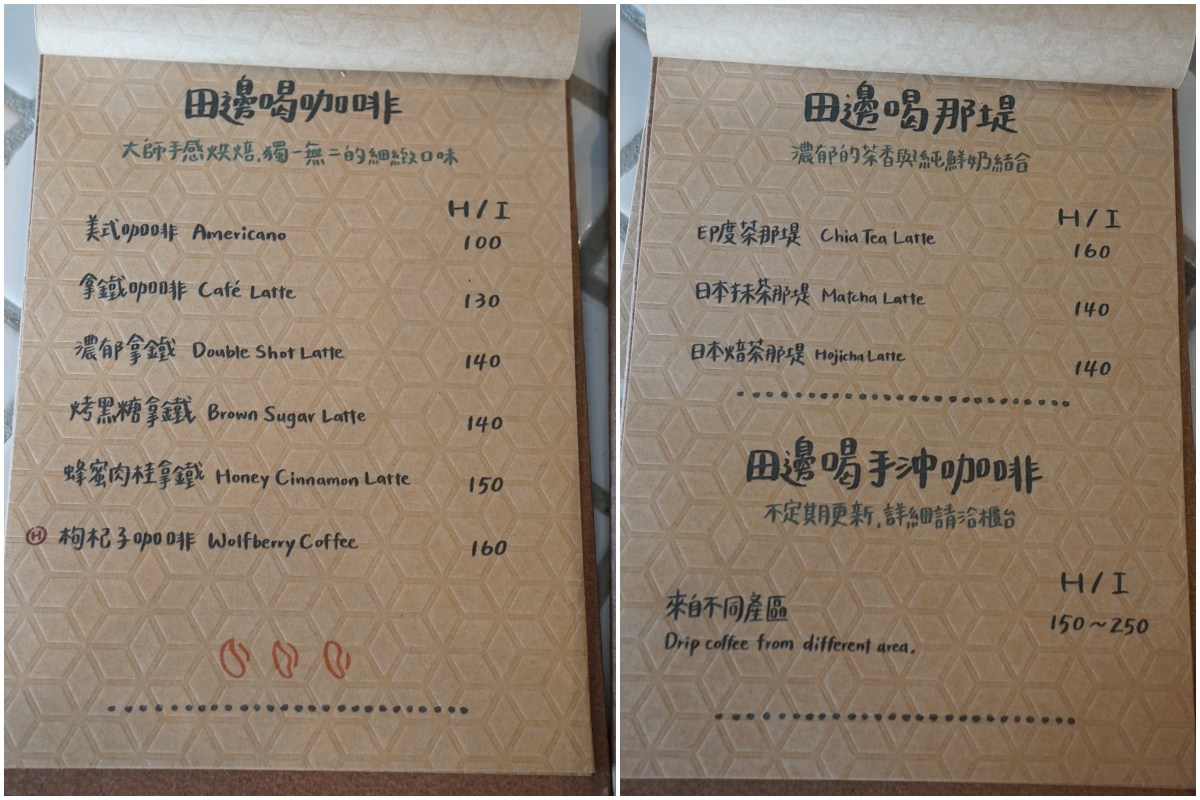 田邊喝咖啡
大師手感烘焙.獨一無二的細緻口味
H/I
美式咖啡 Americano 100
拿鐵咖啡 Café Latte 130
濃郁拿鐵 Double Shot Latte 140
烤黑糖拿鐵 Brown Sugar Latte 140
蜂蜜肉桂拿鐵 Honey Cinnamon Latte 150
Ⓗ 枸杞子咖啡 Wolfberry Coffee 160
田邊喝那堤
濃郁的茶香與純鮮奶結合
H/I
印度茶那堤 Chia Tea Latte 160
日本抹茶那堤 Matcha Latte 140
日本焙茶那堤 Hojicha Latte 140
田邊喝手沖咖啡
不定期更新,詳細請洽櫃台
H/I
來自不同產區 150~250
Drip coffee from different area.